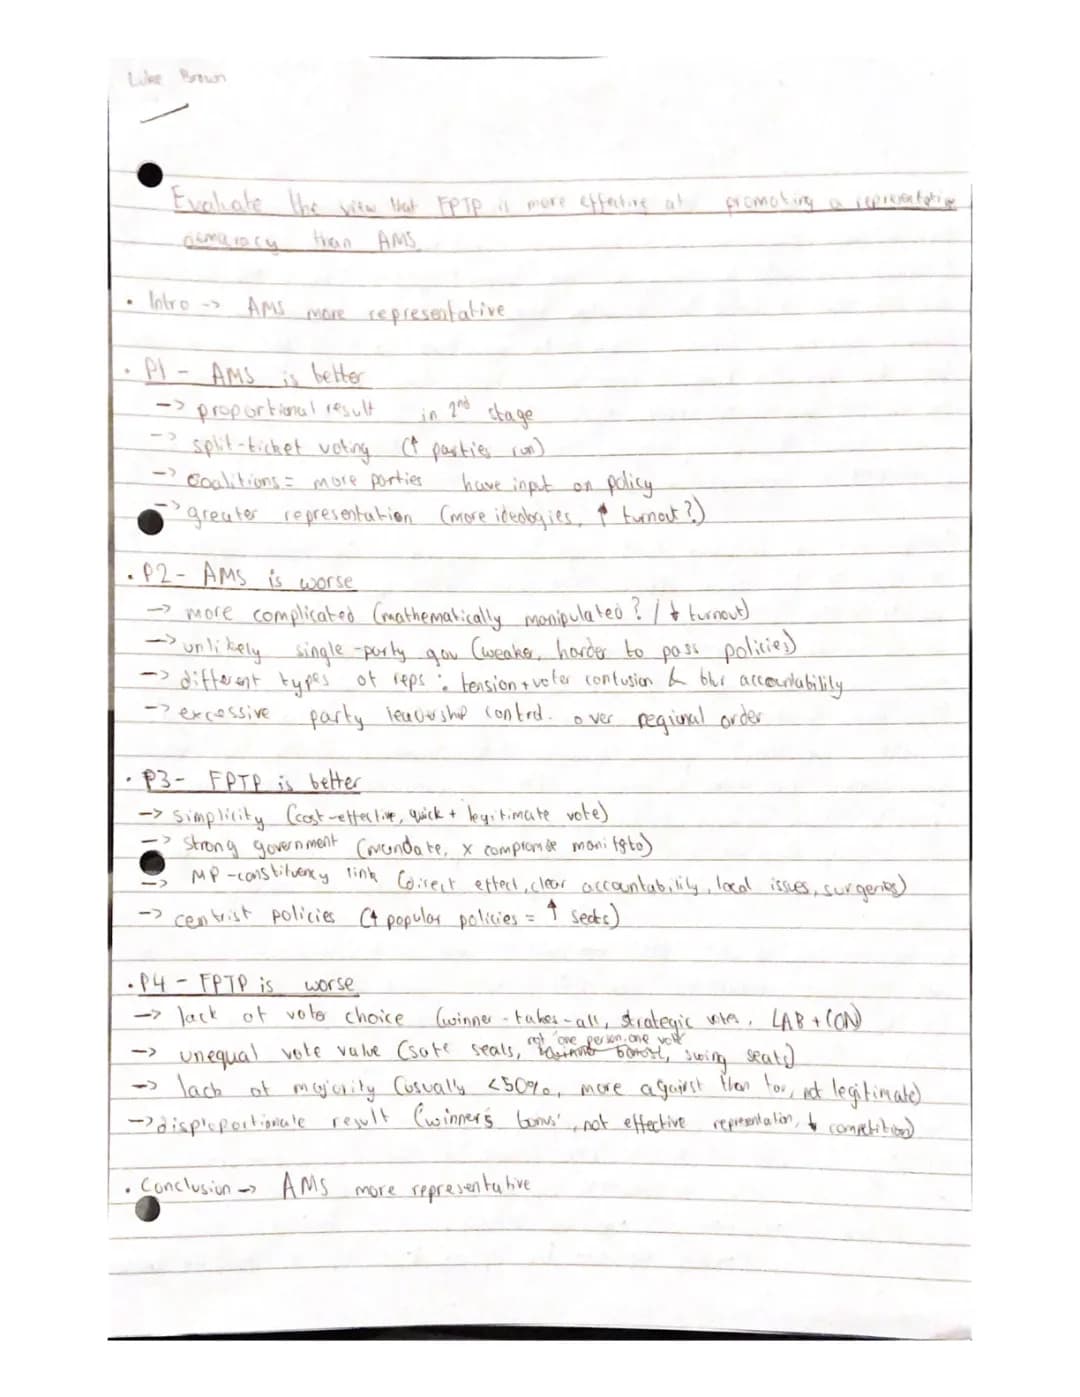 Luke Brown
Evaluate the view that FPTP is more effective at promoting a representative
democracy than AMS
• Intro -> AMS more representative
• P1 - AMS is better
-> proportional result in 2nd stage
-> split-ticket voting (↑ parties run)
-> coalitions = more parties have input on policy
-> greater representation (more ideologies, ↑ turnout?)
• P2 - AMS is worse
-> more complicated (mathematically manipulated? / ↓ turnout)
-> unlikely single-party gov (weaker, harder to pass policies)
-> different types of reps : tension + voter confusion & blur accountability
-> excessive party leadership control over regional order
• P3 - FPTP is better
-> simplicity (cost-effective, quick + legitimate vote)
-> strong government (mandate, x compromise manifesto)
-> MP-constituency link (direct effect, clear accountability, local issues, surgeries)
-> centrist policies (↑ popular policies = ↑ seats)
• P4 - FPTP is worse
-> lack of voter choice (winner-takes-all, strategic votes, LAB + CON)
not 'one person, one vote'
-> unequal vote value (safe seats, swing seats)
-> lack of majority (usually <50%, more against than for, not legitimate)
-> disproportionate result (winner's bonus', not effective representation, ↓ competition)
• Conclusion -> AMS more representative